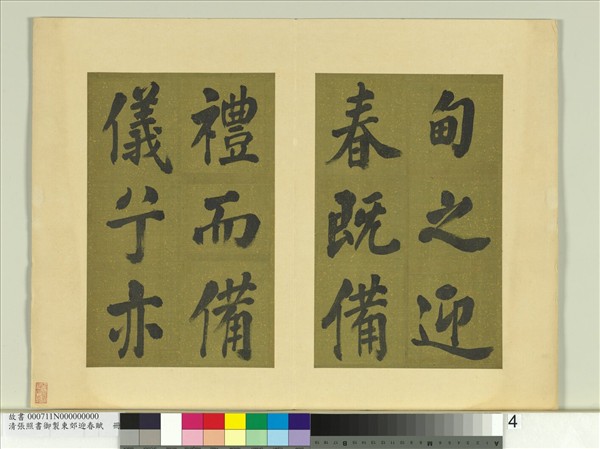 甸之迎
春既備
禮而備
儀兮亦
故書 000711N000000000
清張照書御製東郊迎春賦 冊
4